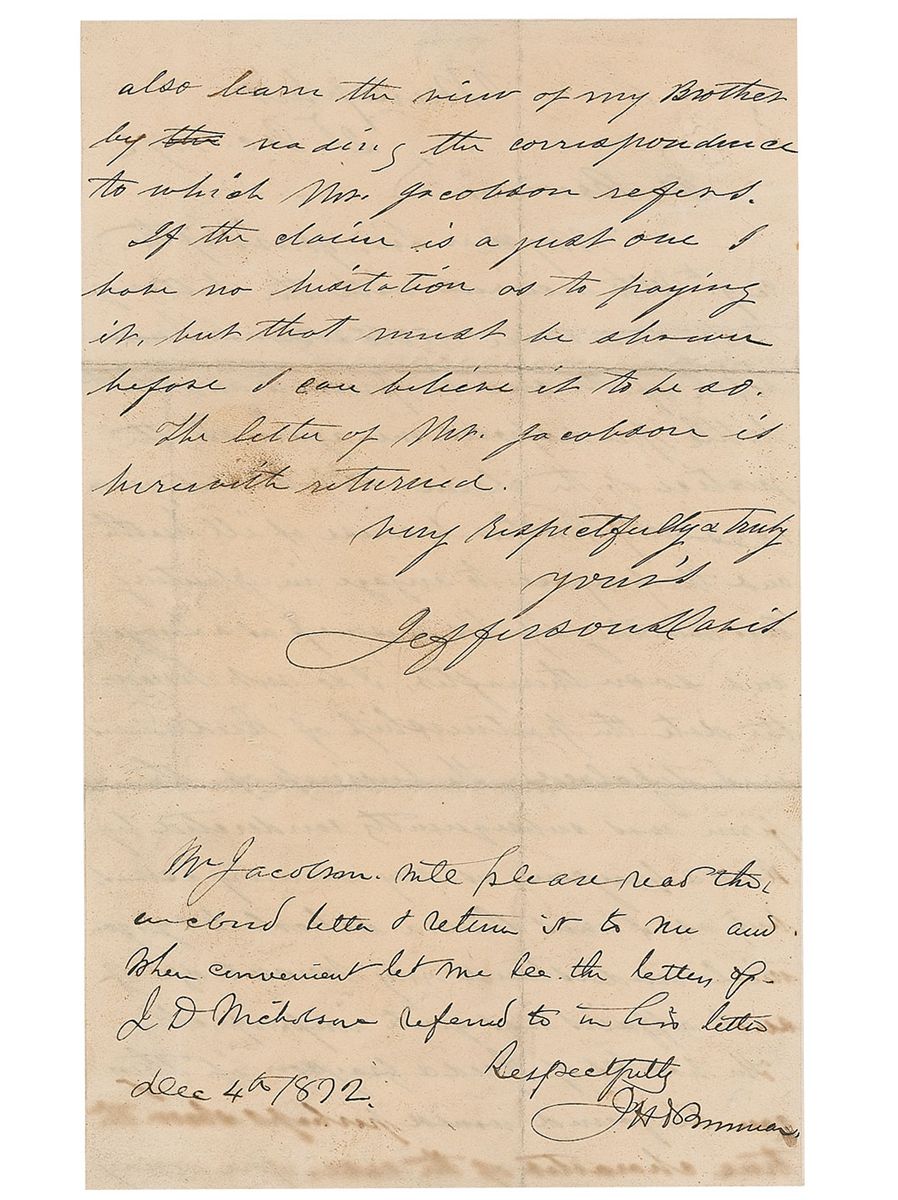 also learn the view of my Brother
by the reading the correspondence
to which Mr. Jacobson refers.
If the claim is a just one I
have no hesitation as to paying
it, but that must be shown
before I can believe it to be so.
The letter of Mr. Jacobson is
herewith returned.
Very Respectfully & Truly
your's
Jefferson Davis
Mr Jacobson. will please read the
enclosed letter & return it to me and
when convenient let me see the letters of
J D Nicholson referred to in his letter
Respectfully
Dec 4th 1872.